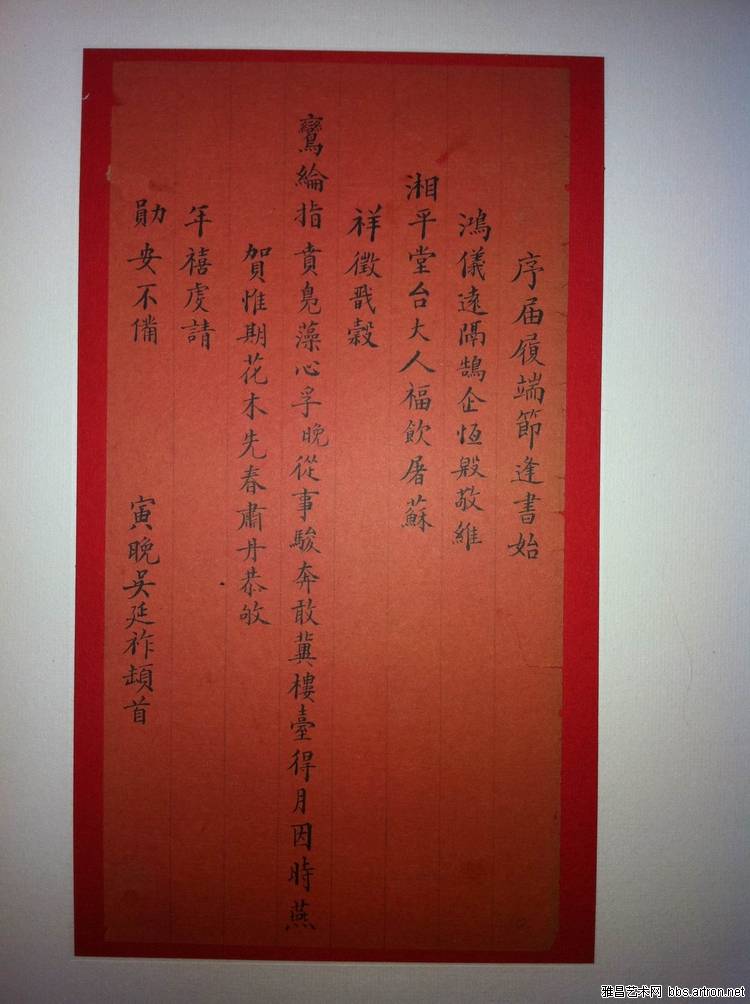 序届履端節逢書始
鴻儀遠隔鵠企恆殷敬維
湘平堂台大人福飲屠蘇
祥徵戩穀
鸞綸指賁鳧藻心孚晚從事駿奔敢冀樓臺得月因時燕
賀惟期花木先春肅丹恭敂
年禧虔請
勛安不備
寅晚吳廷祚頓首
雅昌艺术网 bbs.artron.net